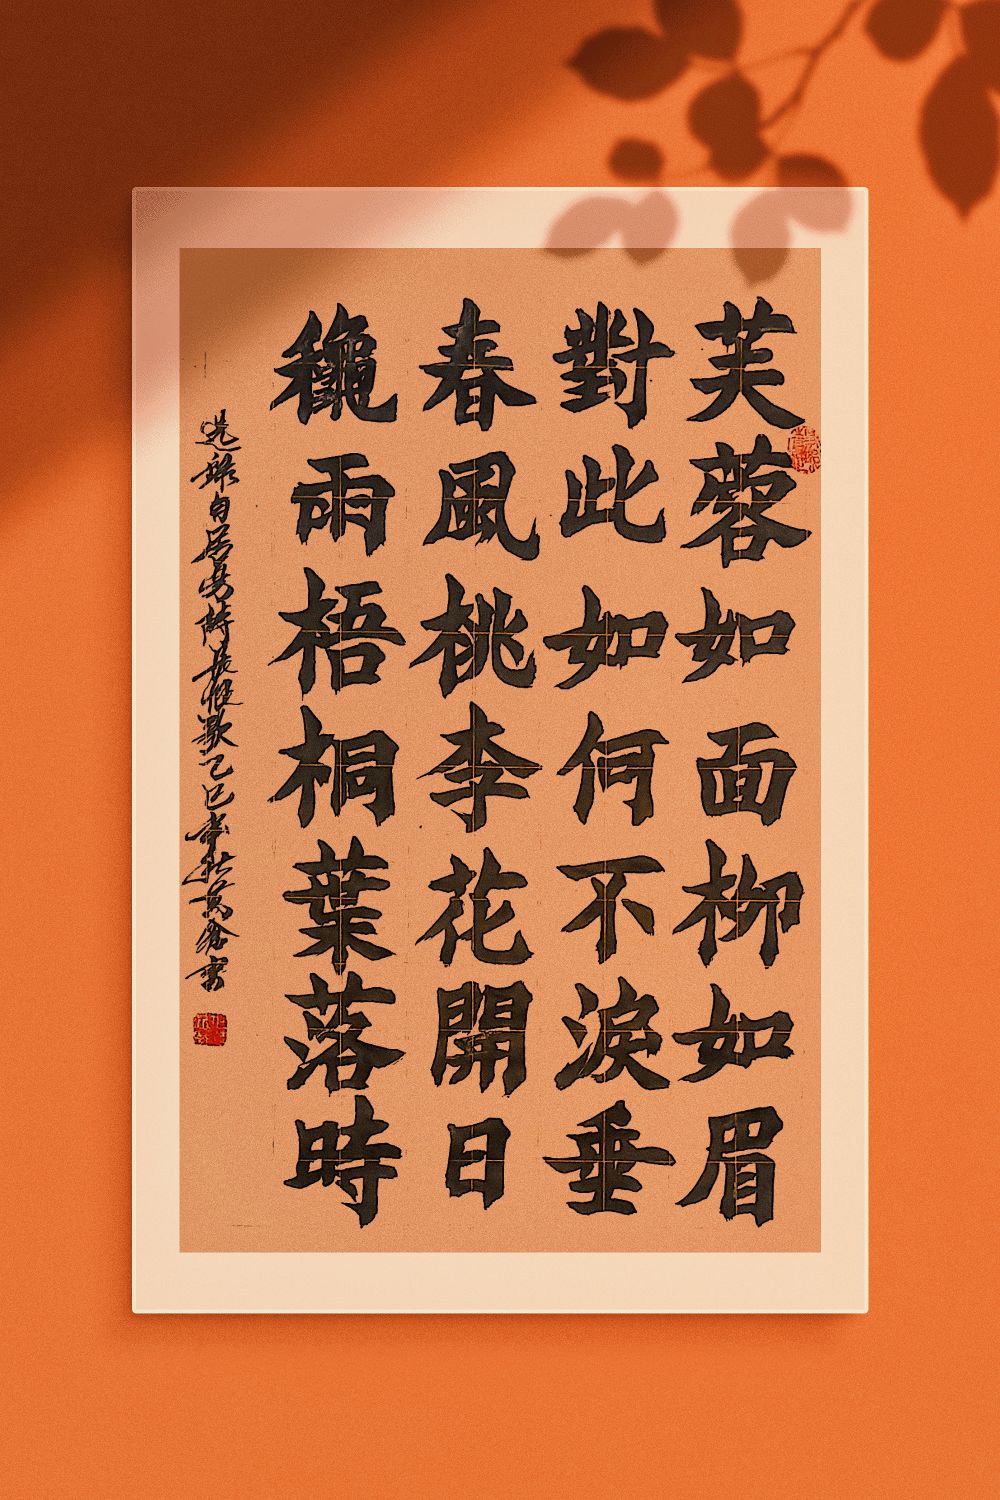 芙蓉如面柳如眉
對此如何不淚垂
春風桃李花開日
龝雨梧桐葉落時
选錄白居易詩長恨歌乙巳 秋 書